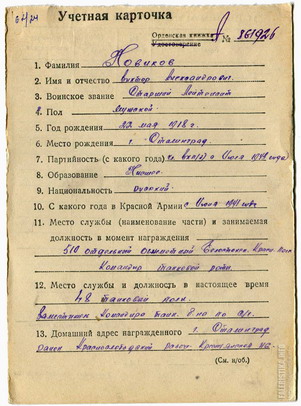 Учетная карточка
Орденская книжка
Удостоверение
№ 361926
1. Фамилия Новиков
2. Имя и отчество Виктор Александрович
3. Воинское звание Старший Лейтенант
4. Пол Мужской
5. Год рождения 22 мая 1918 г.
6. Место рождения г. Сталинград
7. Партийность (с какого года) Июля 1942 года
8. Образование Низшее
9. Национальность русский
10. С какого года в Красной Армии с Июля 1941 года
11. Место службы (наименование части) и занимаемая
должность в момент награждения
510 отдельный
Командир танковой роты
12. Место службы и должность в настоящее время
48 танковый полк
Заместитель Командира Танк. б-на по
13. Домашний адрес награжденного г. Сталинград
(См. н/об.)